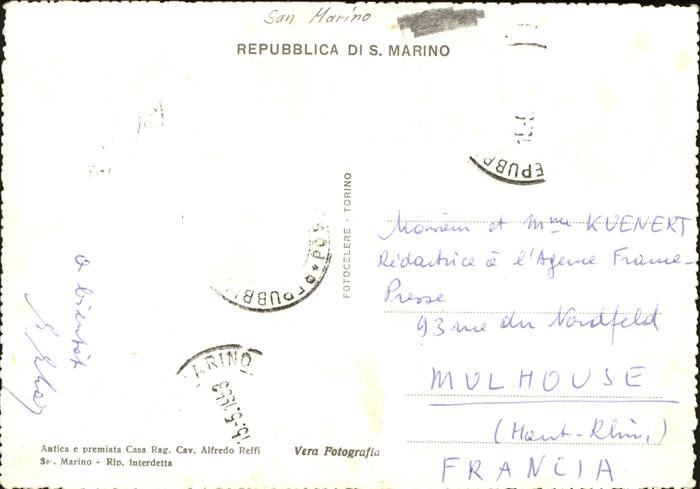 San Marino
REPUBBLICA DI S. MARINO
EPUBB
FOTOCELERE - TORINO
Monsieur et Mme KUENERT
Rédactrice à l'Agence France-
Presse
93 rue du Nordfeld
MULHOUSE
(Haut-Rhin)
FRANCIA
a bientôt
EPUBBLI
MARINO
Antica e premiata Casa Rag. Cav. Alfredo Reffi
San Marino - Rip. Interdetta
Vera Fotografia